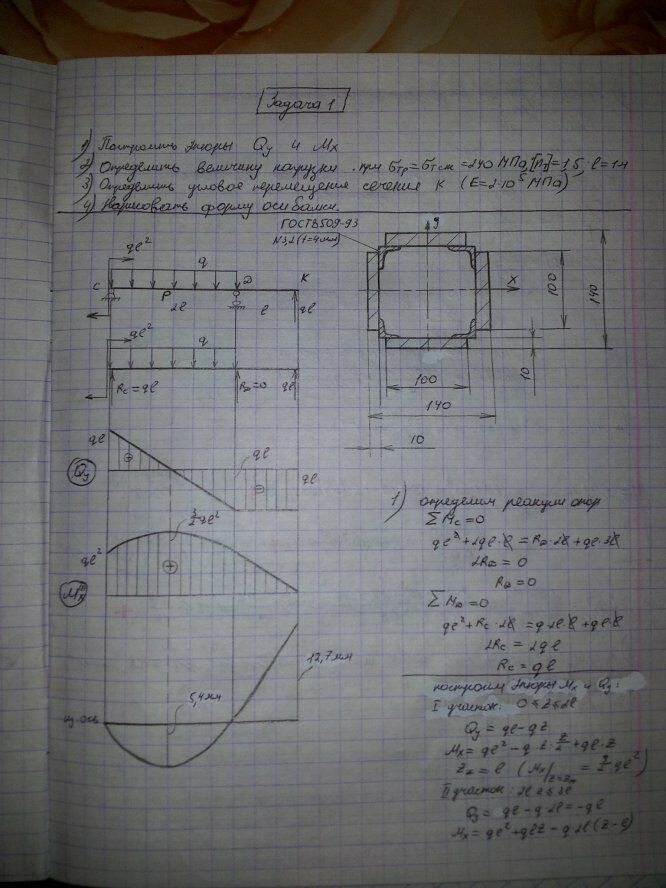 Задача 1
1) Построить эпюры Qy и Mx
2) Определить величину нагрузки при σтр=σтсж=240 МПа, [nт]=1,5, l=1м
3) Определить угловое перемещение сечения K (E=2·10⁵ МПа)
4) Нарисовать форму оси балки.
ГОСТ8509-93
y
ql²
q
C
D
K
P
2l
l
ql
x
100
140
100
140
10
10
ql²
q
Rc=ql
RD=0
ql
ql
ql
ql
Qy
3/2 ql²
ql²
Mx
12,7мм
5,4мм
1) определим реакции опор
ΣMc=0
ql²+2ql·l=RD·2l+ql·3l
2RD=0
RD=0
ΣMD=0
ql²+Rc·2l=q·2l·l+ql·l
2Rc=2ql
Rc=ql
построим эпюры Mx и Qy:
I участок: 0≤z≤2l
Qy=ql-qz
Mx=ql²-q·z·z/2+ql·z
z*=l (Mx|z=z*=3/2 ql²)
II участок: 2l≤z≤3l
Qy=ql-q·2l=-ql
Mx=ql²+qlz-q·2l(z-l)